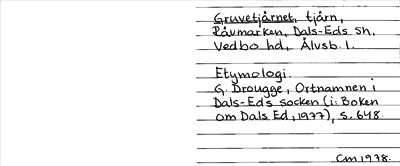 Gruvetjärnet, tjärn,
Råvmarken, Dals-Eds sn,
Vedbo hd, Älvsb. l.
Etymologi.
G. Drougge, Ortnamnen i
Dals-Eds socken (i: Boken
om Dals Ed, 1977), s. 648.
Cm 1978.